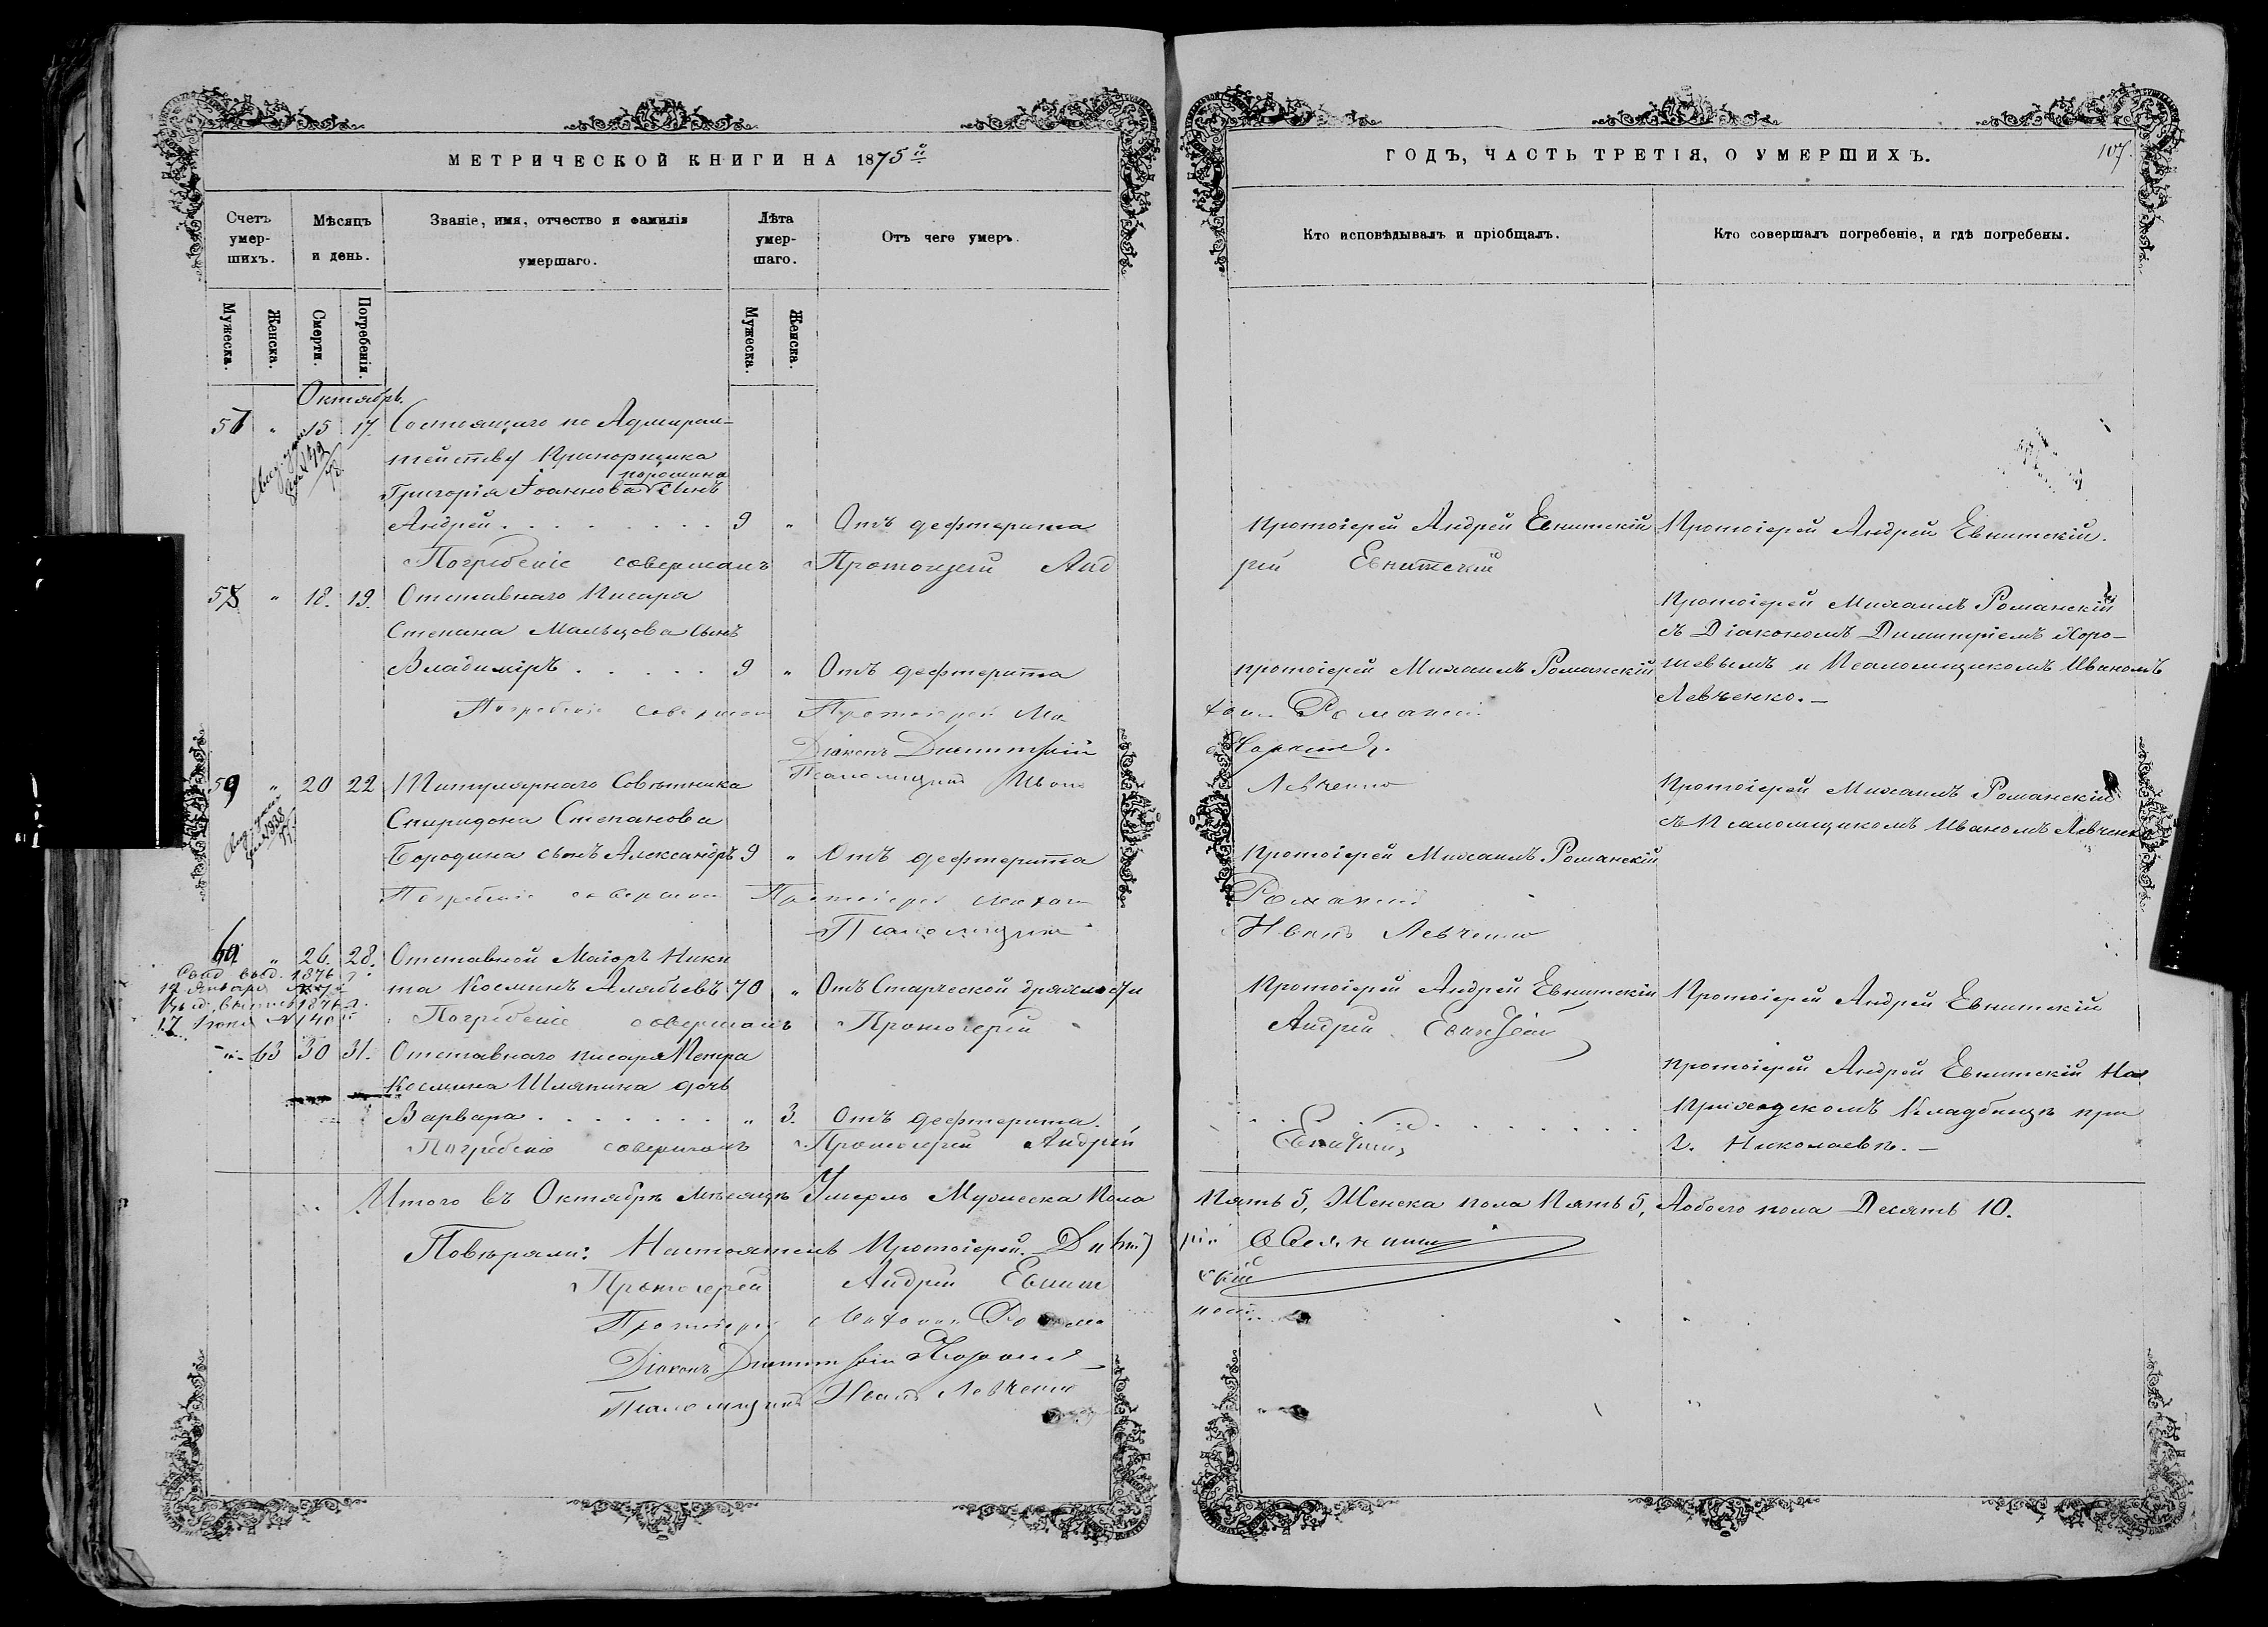 МЕТРИЧЕСКОЙ КНИГИ НА 1875й
Счетъ умер-шихъ.
Мѣсяцъ и день.
Званіе, имя, отчество и фамилія умершаго.
Лѣта умер-шаго.
Отъ чего умеръ.
Мужеска.
Женска.
Смерти.
Погребенія.
Мужеска.
Женска.
Октябрь.
57 " 15 17. Состоящаго по Адмирал-
тейству Прапорщика
порошина
Григорія Іоаннова сынъ
Андрей . . . . . . . . 9 " Отъ дефтерита
Погребеніе совершалъ Протоіерей Анд
58 " 18. 19. Отставнаго Писаря
Степана Мальцова сынъ
Владиміръ . . . . . 9 " Отъ дефтерита
Погребеніе совершал Протоіерей Ми
Діаконъ Димитрій
Псаломщикъ Иван
59 " 20 22 Титулярнаго Совѣтника
Спиридона Степанова
Бородина сынъ Александръ 9 " Отъ дефтерита
Погребеніе совершал Протоіерей Михаи
Псаломщик
60 " 26. 28. Отставной Маіоръ Ники
та Косминъ Алябьевъ 70 " Отъ Старческой дряхлости
Погребеніе совершалъ Протоіерей
12 Января
17 Іюня № 140
" 63 30 31. Отставнаго писаря Петра
Космина Шляпина дочь
Варвара . . . . . . . " 3. Отъ дефтерита.
Погребеніе совершалъ Протоіерей Андрей
Итого въ Октябрѣ мѣсяцѣ Умерло Мужеска пола
Повѣряли: Настоятель Протоіерей Димит
Протоіерей Андрей Евнит
Протоіерей Михаил Рома
Діаконъ Димитрій Хорошев
Псаломщикъ Иванъ Левченко
ГОДЪ, ЧАСТЬ ТРЕТІЯ, О УМЕРШИХЪ.
107.
Кто исповѣдывалъ и пріобщалъ.
Кто совершалъ погребеніе, и гдѣ погребены.
Протоіерей Андрей Евнитскій Протоіерей Андрей Евнитскій.
рей Евнитскій
Протоіерей Михаилъ Романскій
съ Діакономъ Димитріемъ Хоро-
протоіерей Михаилъ Романскій шевымъ и Псаломщикомъ Иваномъ
Левченко. —
хаил Романскій
Левченко
Протоіерей Михаилъ Романскій
съ Псаломщикомъ Иваномъ Левченк
Протоіерей Михаилъ Романскій
Романскій
Иванъ Левченко
Протоіерей Андрей Евнитскій Протоіерей Андрей Евнитскій
Андрей Евнитскій
Протоіерей Андрей Евнитскій На
Приходскомъ Кладбищѣ при
г. Николаевѣ. —
Евнитскій
Пять 5, Женска пола Пять 5, Обоего пола Десять 10.
рій
скій